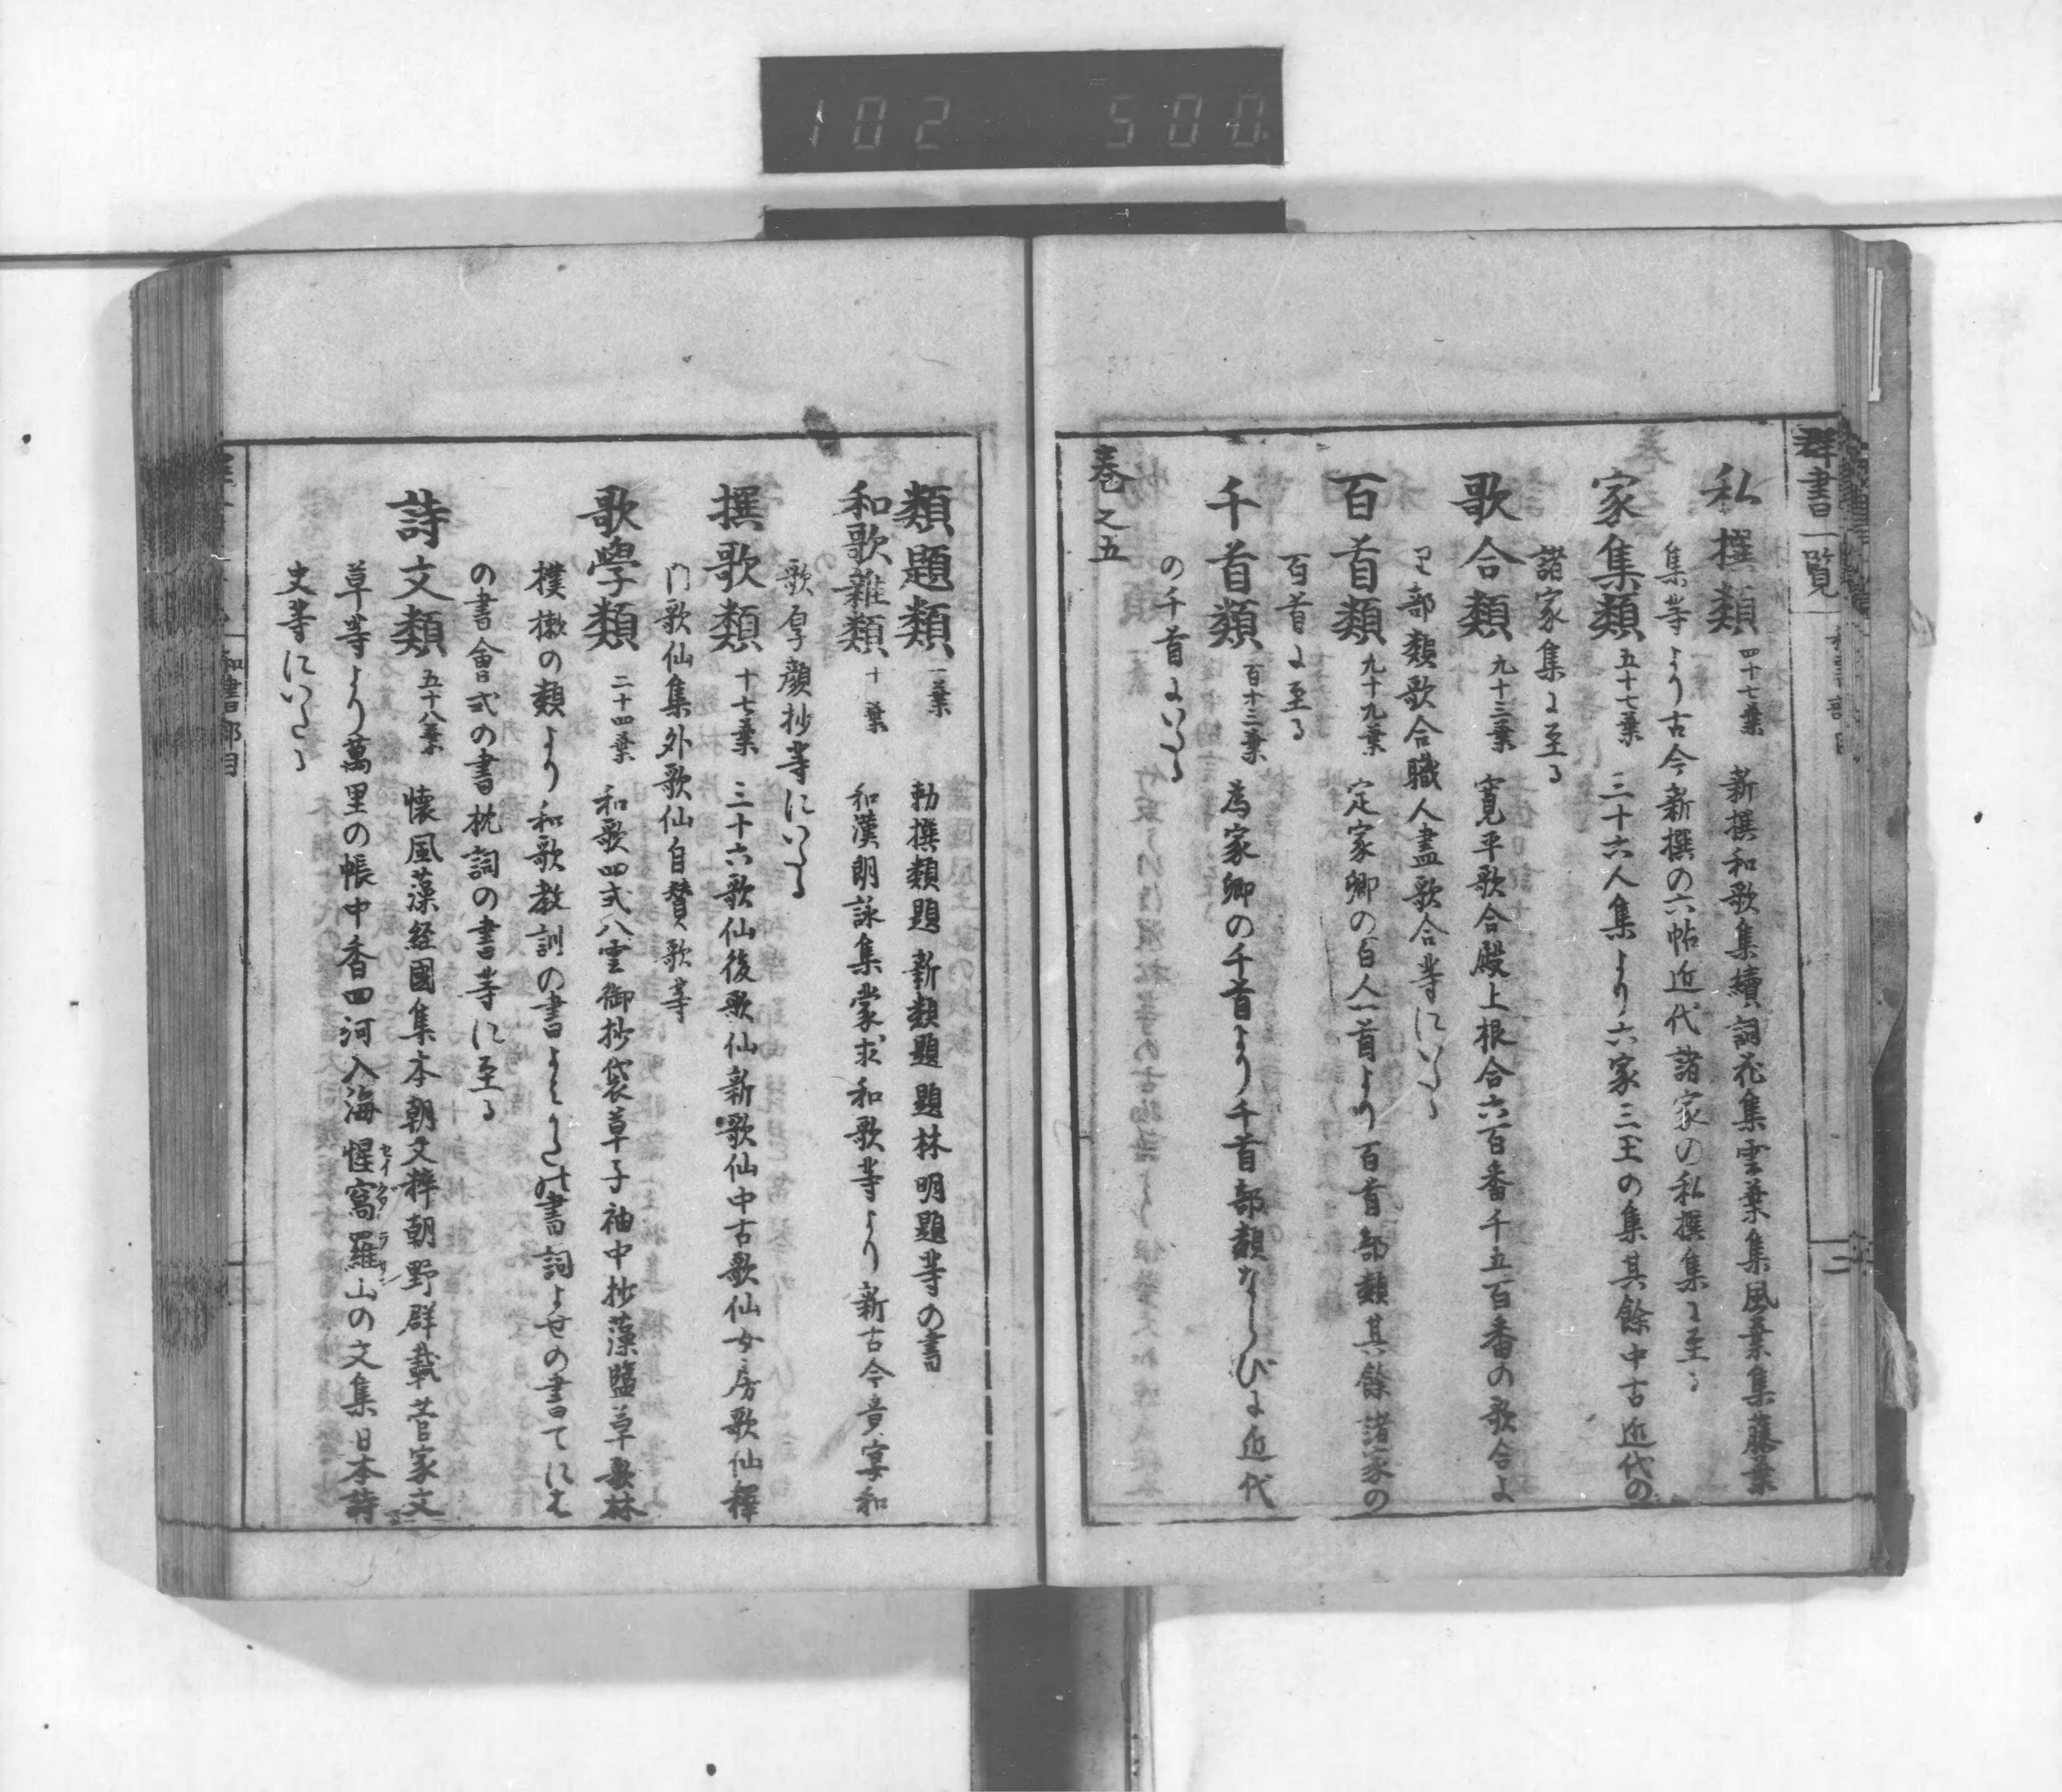 102 500
群書一覧
二
私撰類 四十七葉 新撰和歌集續詞花集雲葉集風葉集藤葉
集等より古今新撰の六帖近代諸家の私撰集に至る
家集類 五十七葉 三十六人集より六家三王の集其餘中古近代の
諸家集に至る
歌合類 九十三葉 寛平歌合殿上根合六百番千五百番の歌合よ
り部類歌合職人盡歌合等にいたる
百首類 九十九葉 定家卿の百人一首より百首部類其餘諸家の
百首に至る
千首類 百十三葉 為家卿の千首より千首部類ならびに近代
の千首にいたる
巻之五
類題類 一葉 勅撰類題新類題題林明題等の書
和歌雜類 十葉 和漢朗詠集蒙求和歌等より新古今竟宴和
歌 顔抄等にいたる
撰歌類 十七葉 三十六歌仙後歌仙新歌仙中古歌仙女房歌仙釋
门歌仙集外歌仙自賛歌等
歌學類 二十四葉 和歌四式八雲御抄袋草子袖中抄藻鹽草歌林
樸樕の類より和歌教訓の書 書詞よせの書てには
の書會式の書枕詞の書等に至る
詩文類 五十八葉 懐風藻経國集本朝文粹朝野群載菅家文
草等より萬里の帳中香四河入海惺窩羅山の文集日本詩
史等にいたる
和書部目